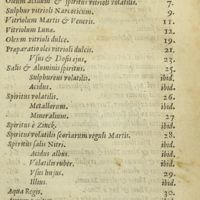 Oleum acidum & spiritus vitrioli volatilis. 7.
Sulphur vitrioli Narcoticum. 9.
Vitriolum Martis & Veneris. 11.
Vitriolum Lunæ. 12.
Oleum vitrioli dulce. 19.
Præparatio olei vitrioli dulcis. 21.
Vsus & Dosis ejus. 23.
Salis & Aluminis spiritus. 25.
Sulphureus volatilis. ibid.
Acidus. ibid.
Spiritus volatilis. 26.
Metallorum. ibid.
Mineralium. 27
Spiritus è Zinck. ibid.
Spiritus volatilis scoriarum reguli Martis. 28.
Spiritus salis Nitri. ibid.
Acidus albus. ibid.
Volatilis ruber. ibid.
Vsus hujus. 29.
Illius. ibid.
Aqua Regis. 30.